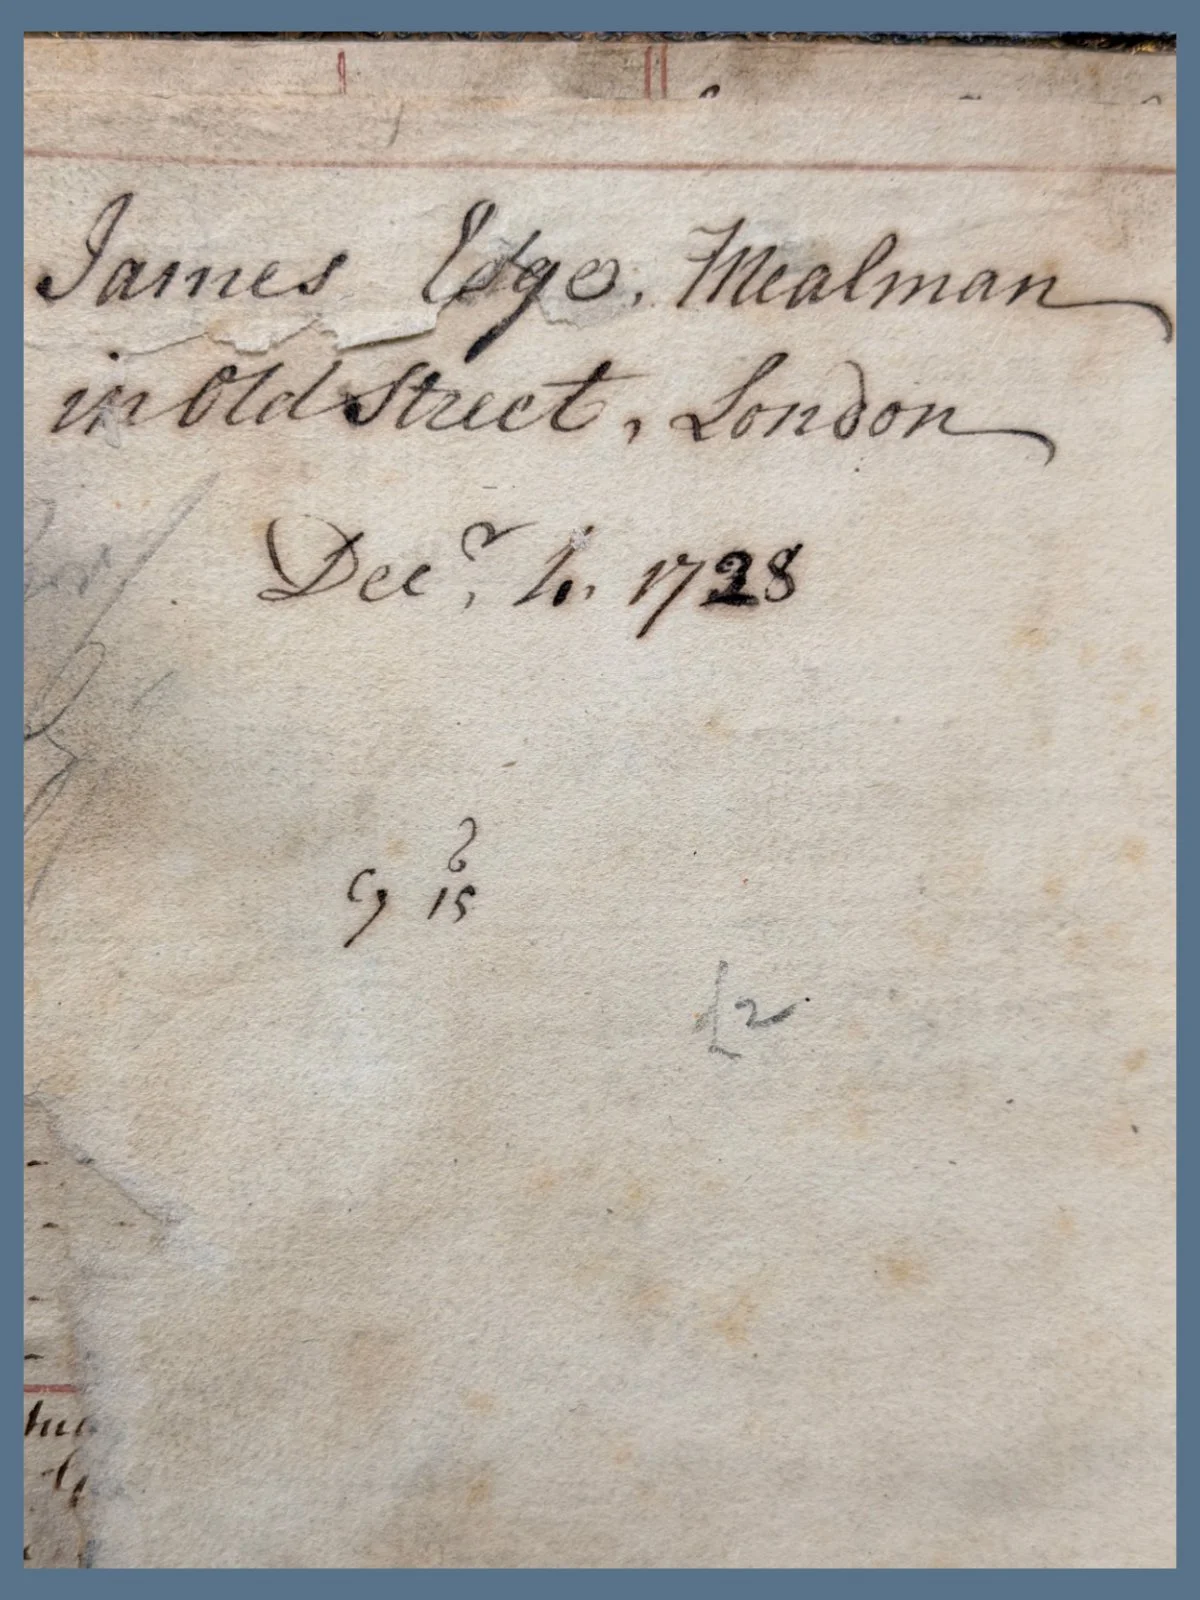 James Edge, Mealman
in Old Street, London
Decr, 4, 1728
6
Cy 15
£2